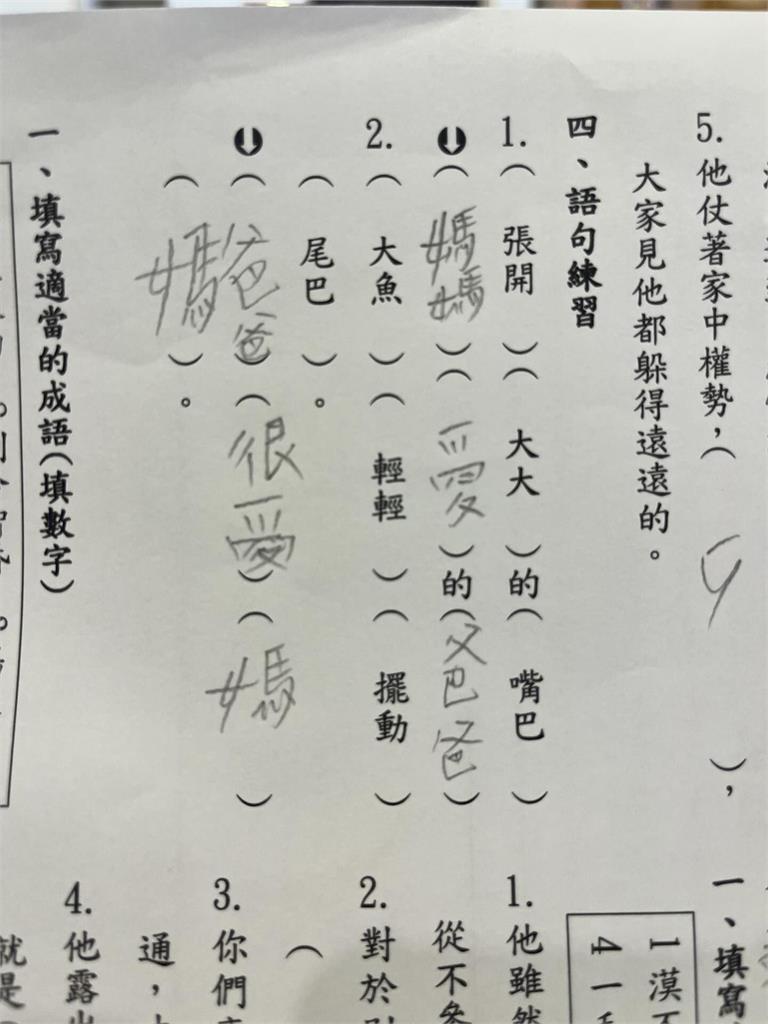 5. 他仗著家中權勢,( 9 ),
大家見他都躲得遠遠的。
四、語句練習
1. (張開)(大大)的(嘴巴)
⬇(媽媽)(愛)的(爸爸)
2. (大魚)(輕輕)(擺動)
(尾巴)。
⬇(爸爸)(很愛)(媽)
(媽)。
一、填寫適當的成語(填數字)
一、填寫
1漠
4一
1. 他雖然
從不參
2. 對於
(
3. 你們
通,
4. 他露出
就是